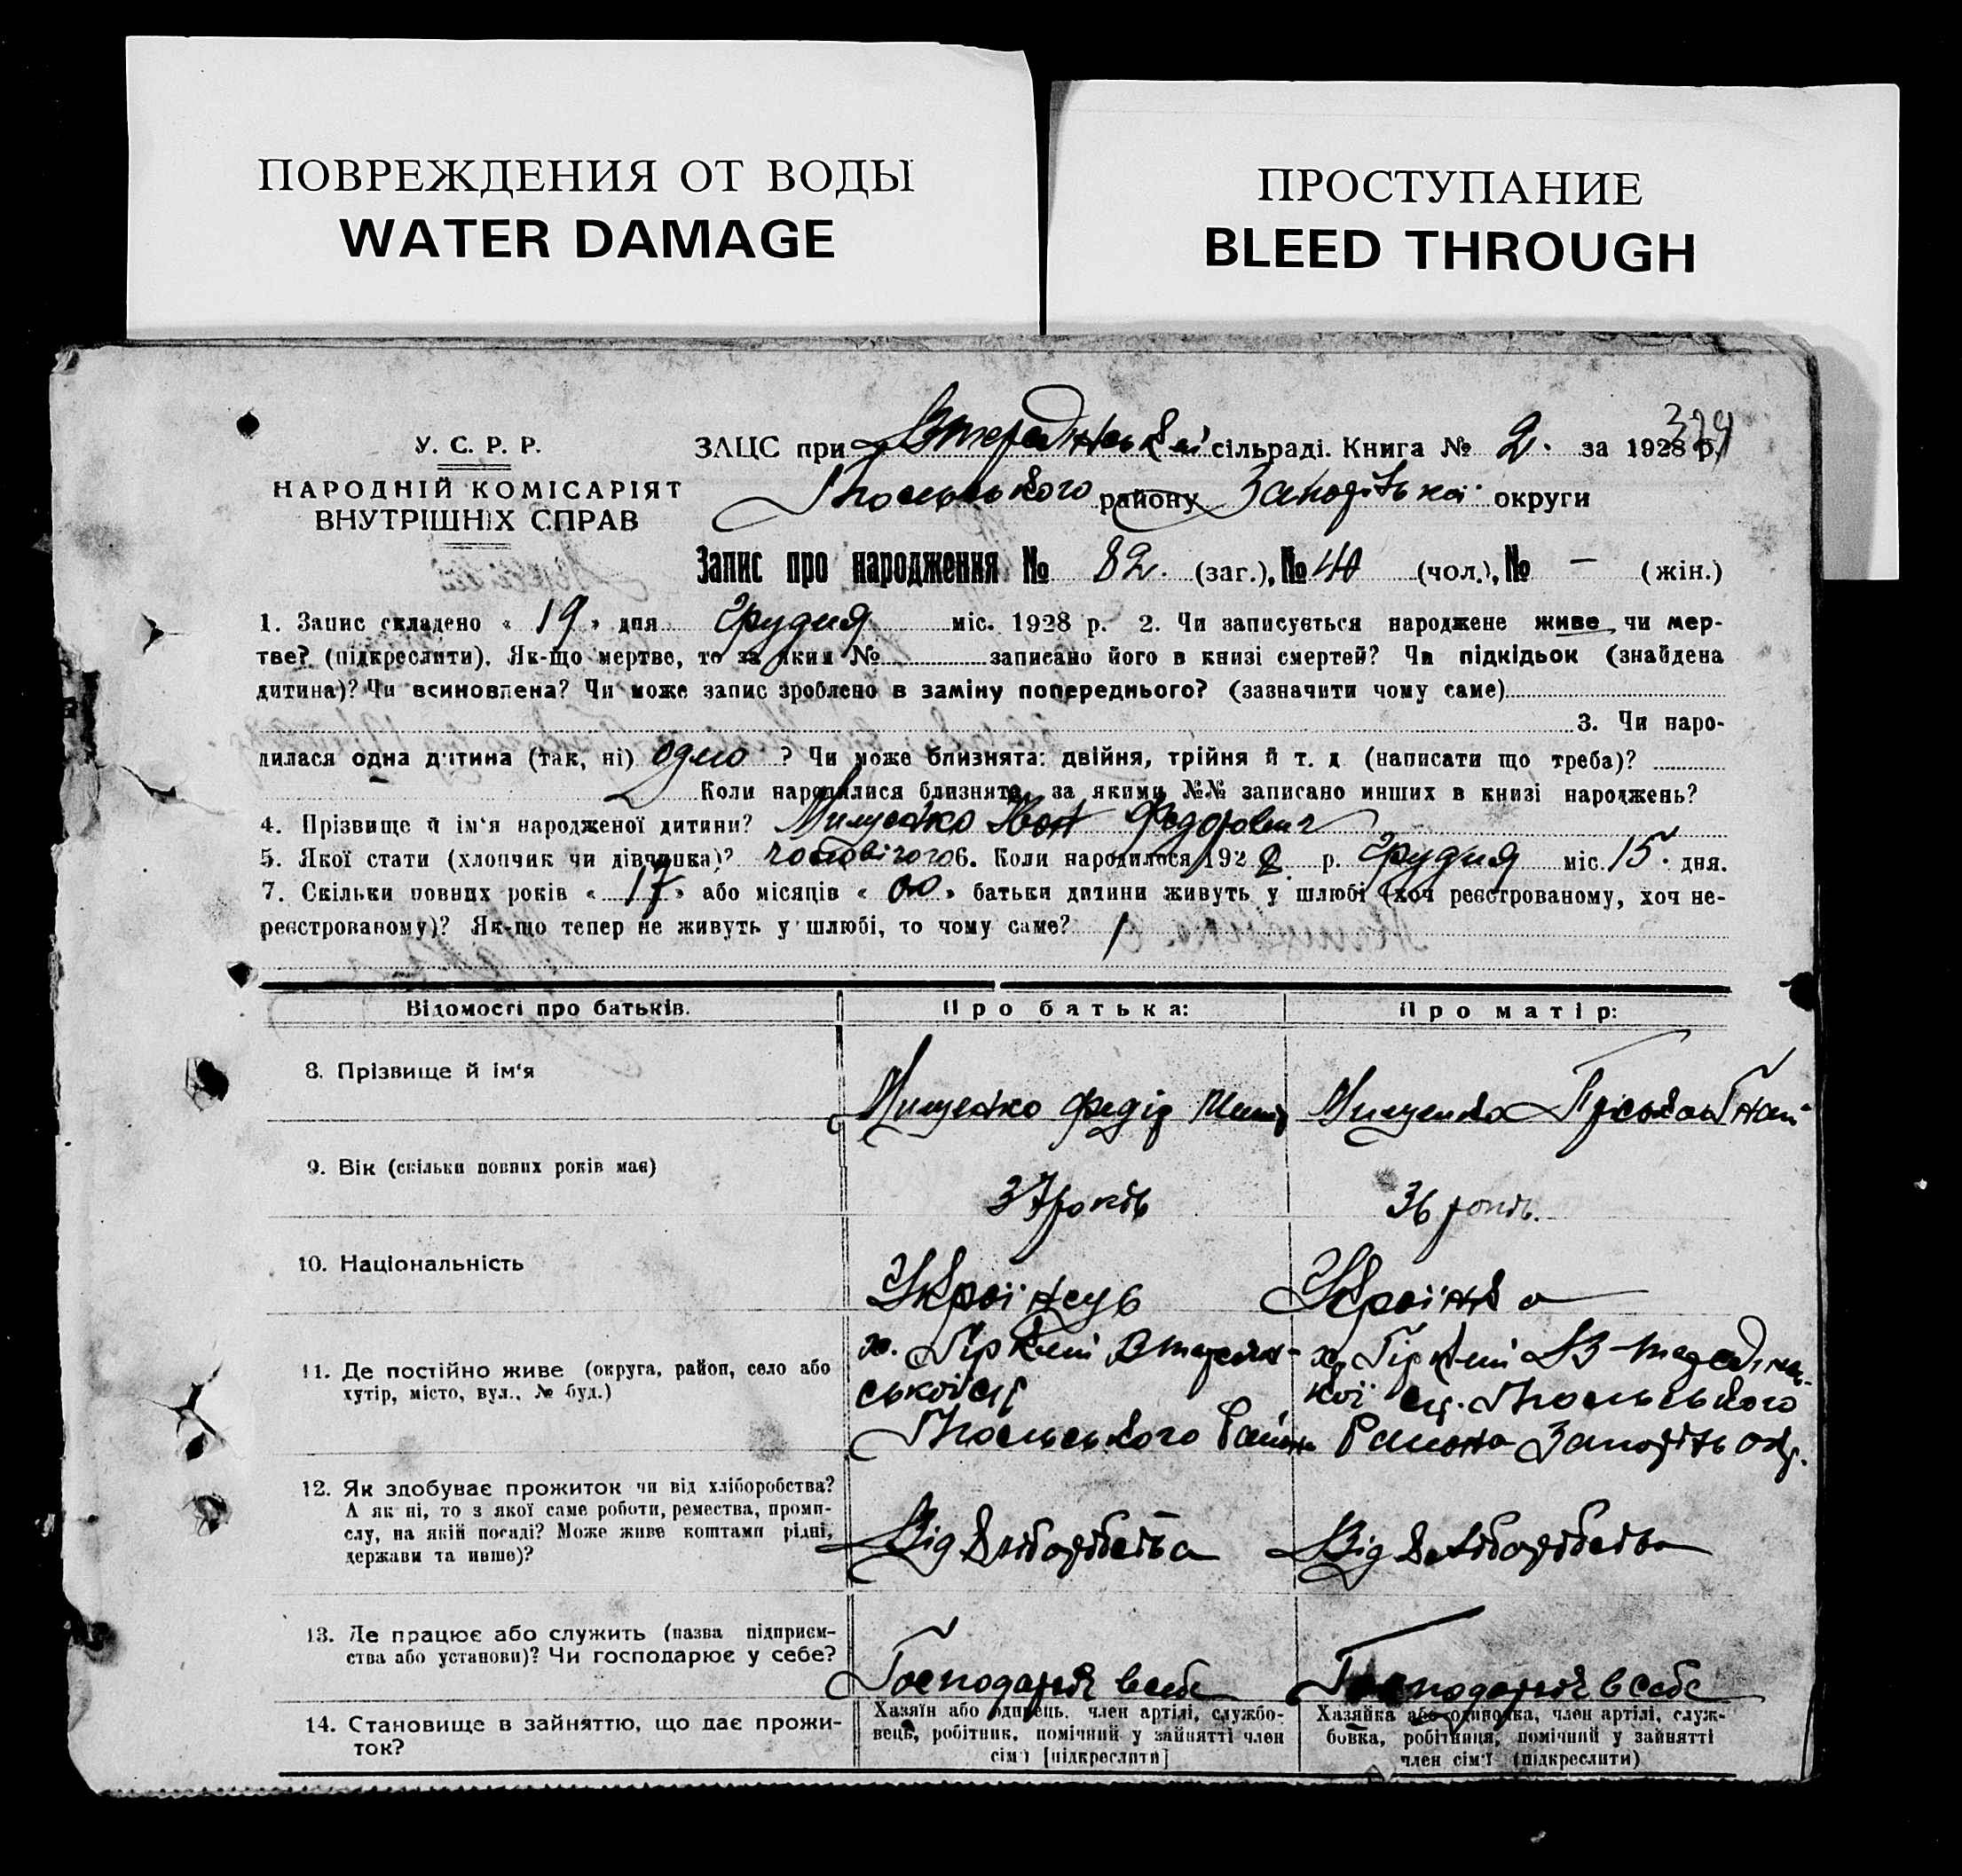 ПОВРЕЖДЕНИЯ ОТ ВОДЫ
WATER DAMAGE
ПРОСТУПАНИЕ
BLEED THROUGH
У. С. Р. Р.
НАРОДНІЙ КОМІСАРІЯТ
ВНУТРІШНІХ СПРАВ
ЗАЦС при сільраді. Книга № 2. за 1928 р.
району Запорізької округи
Запис про народження № 82. (заг.), № 40 (чол.), № — (жін.)
1. Запис складено « 19 » дня Грудня міс. 1928 р. 2. Чи записується народжене живе чи мер-
тве? (підкреслити). Як-що мертве, то за яким № записано його в книзі смертей? Чи підкідьок (знайдена
дитина)? Чи всиновлена? Чи може запис зроблено в заміну попереднього? (зазначити чому саме)
3. Чи наро-
дилася одна дитина (так, ні) одно ? Чи може близнята: двійня, трійня й т. д. (написати що треба)?
Коли народилися близнята, за якими №№ записано инших в книзі народжень?
4. Прізвище й ім'я народженої дитини? Мищенко Іван Федорович
5. Якої стати (хлопчик чи дівчинка)? чоловічого 6. Коли народилося 1928 р. Грудня міс. 15 дня.
7. Скільки повних років « 17 » або місяців « 00 » батьки дитини живуть у шлюбі (хоч реєстрованому, хоч не-
реєстрованому)? Як-що тепер не живуть у шлюбі, то чому саме?
Відомості про батьків.
Про батька:
Про матір:
8. Прізвище й ім'я
Мищенко Федір
Мищенко
9. Вік (скільки повних років має)
37 років
36 років.
10. Національність
Українець
Українка
11. Де постійно живе (округа, район, село або
хутір, місто, вул., № буд.)
х. Гіркий
ської с/р
Района
х. Гіркий
кої с/р.
Района Запоріз окр.
12. Як здобуває прожиток чи від хліборобства?
А як ні, то з якої саме роботи, ремества, проми-
слу, на якій посаді? Може живе коштами рідні,
держави та инше)?
Від хліборобства
Від хліборобства
13. Де працює або служить (назва підприєм-
ства або установи)? Чи господарює у себе?
Господарює в себе
Господарює в себе
14. Становище в зайняттю, що дає прожи-
ток?
Хазяїн або одинець, член артілі, службо-
вець, робітник, помічний у зайнятті член
сім'ї [підкреслити]
Хазяйка або одиночка, член артілі, служ-
бовка, робітниця, помічний у зайнятті
член сім'ї (підкреслити)